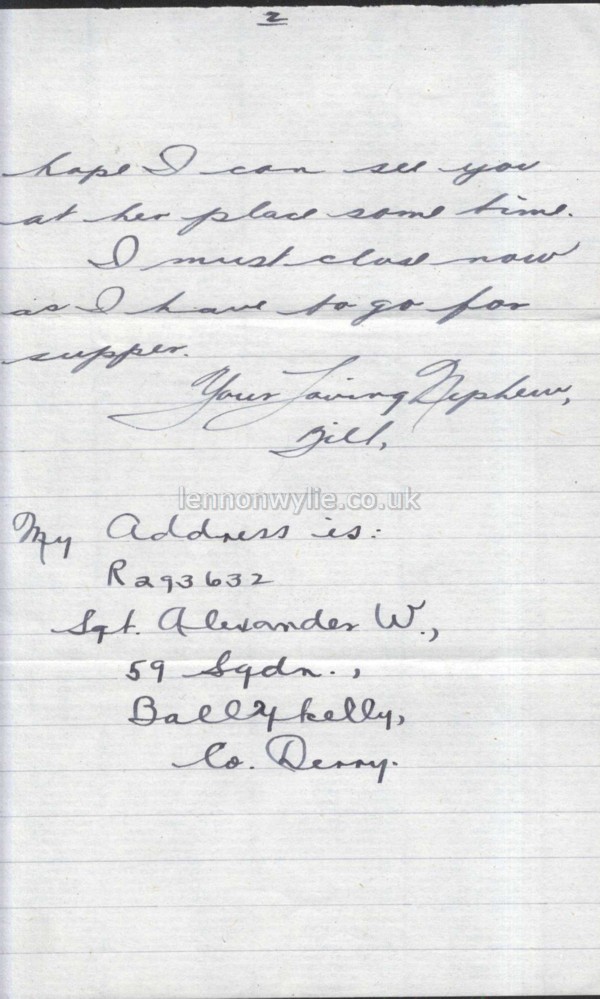 2
hope I can see you
at her place some time.
I must close now
as I have to go for
supper.
Your Loving Nephew,
Bill,
lennonwylie.co.uk
My Address is:
R293632
Sgt. Alexander W.,
59 Sqdn.,
Ballykelly,
Co. Derry.